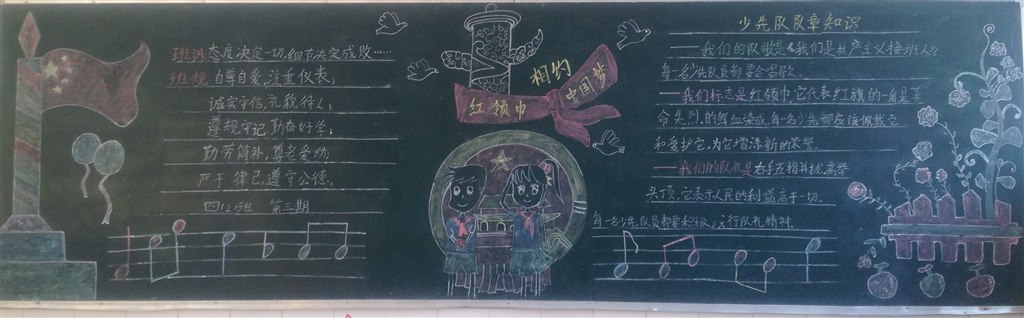 班训:态度决定一切,细节决定成败……
班规:自尊自爱,注重仪表;
诚实守信,礼貌待人;
遵规守纪,勤奋好学;
勤劳简朴,尊老爱幼;
严于律己,遵守公德。
四(2)班 第三期
相约
中国梦
红领巾
少先队队章知识
——我们的队歌是《我们是共产主义接班人》
每一名少先队员都要会唱歌。
——我们标志是红领巾,它代表红旗的一角是革
命先烈的鲜血染成,每一名少先都应该佩戴它
和爱护它,为它增添新的荣誉。
——我们的队礼是右手五指并拢,高举
头顶,它表示人民的利益高于一切。
每一名少先队员都要积极实行队礼精神